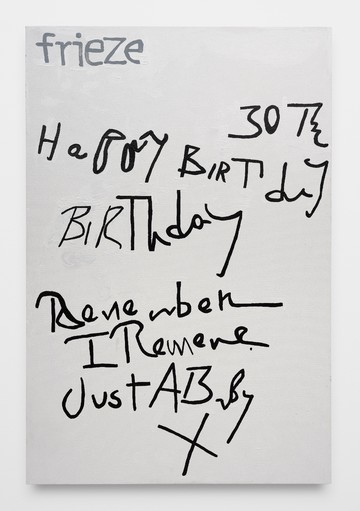 frieze
30Th
Happy BIRTHday
BIRThday
Remember
I Remene
Just A BABy
X